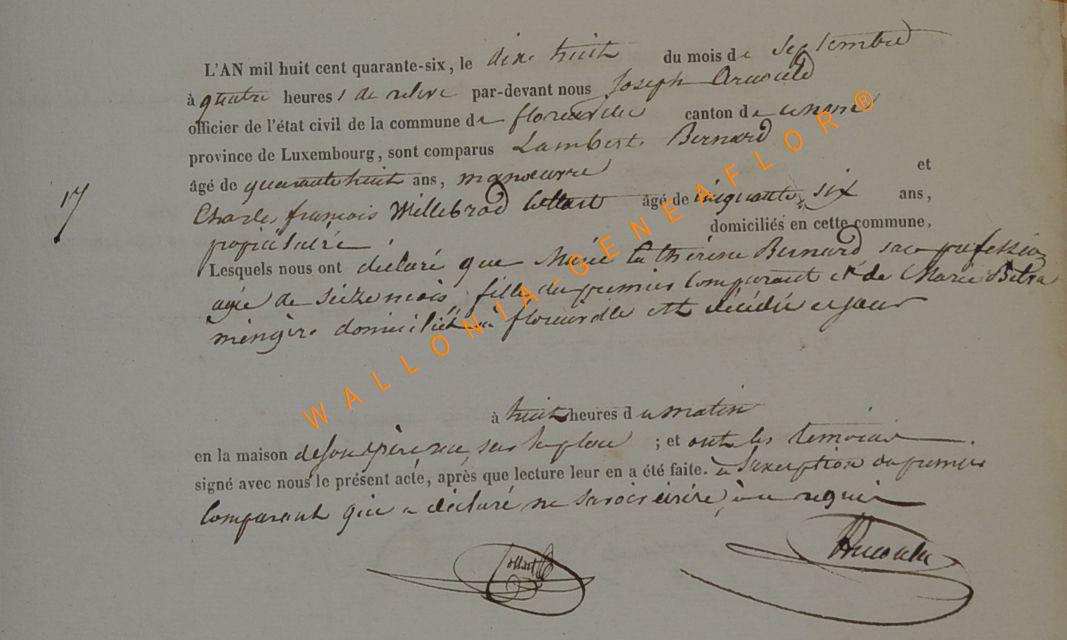 L'AN mil huit cent quarante-six, le dix huit du mois de Septembre
à quatre heures de relevé par-devant nous Joseph Arnould
officier de l'état civil de la commune de florenville canton de
province de Luxembourg, sont comparus Lambert Bernard
âgé de quarante huit ans, manoeuvre et
17
Charle françois Willebrod Collart âgé de cinquante six ans,
propriétaire domiciliés en cette commune,
Lesquels nous ont déclaré que Marie Cathérine Bernard sans profession
agée de seize mois, fille du premier Comparant et de Marie
menagère domiciliée à florenville est décédée ce jour
à huit heures du matin
en la maison de son père sur la place ; et ont les témoins
signé avec nous le présent acte, après que lecture leur en a été faite. à l'exception du premier
Comparant qui a déclaré ne savoir écrire, à ce requis
Collart
Arnould
WALLONIA-GENEAFLOR®